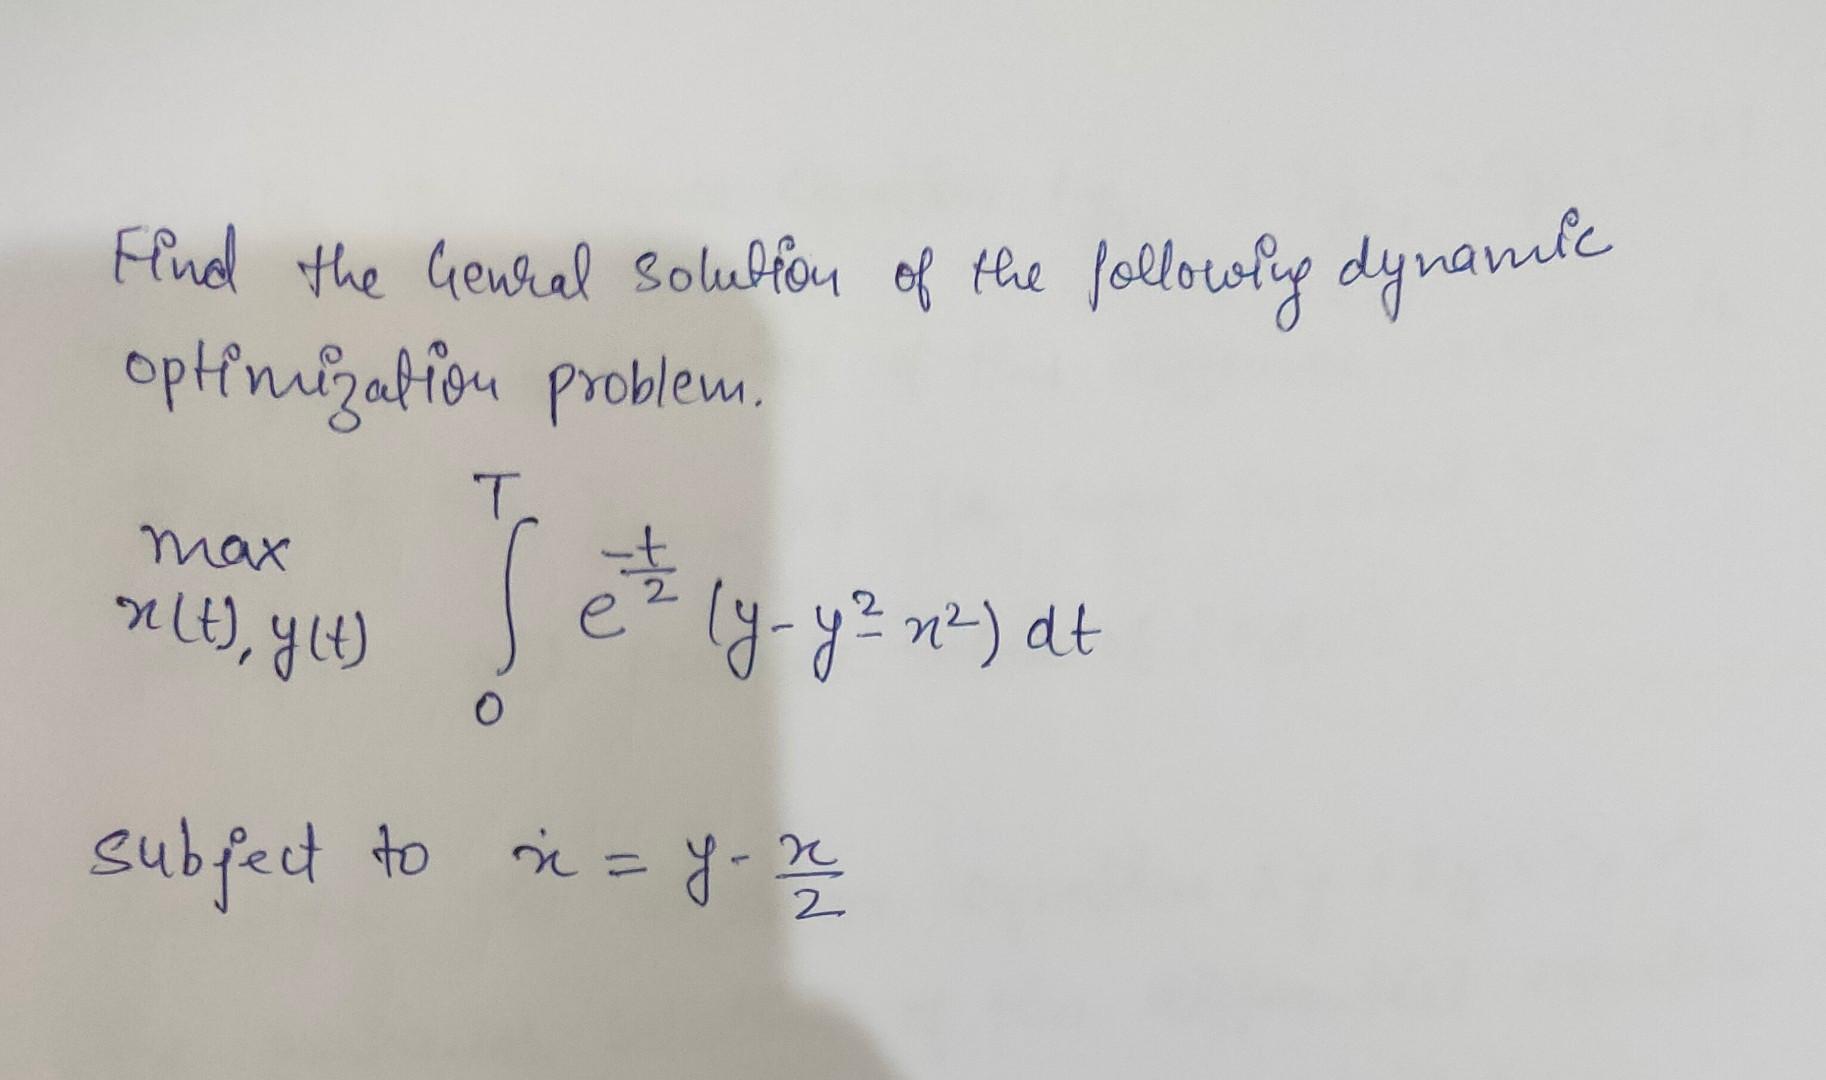 Find the General solution of the following dynamic
optimization problem.
max x(t), y(t) ∫₀ᵀ e^(-t/2) (y - y² - x²) dt
subject to ẋ = y - x/2